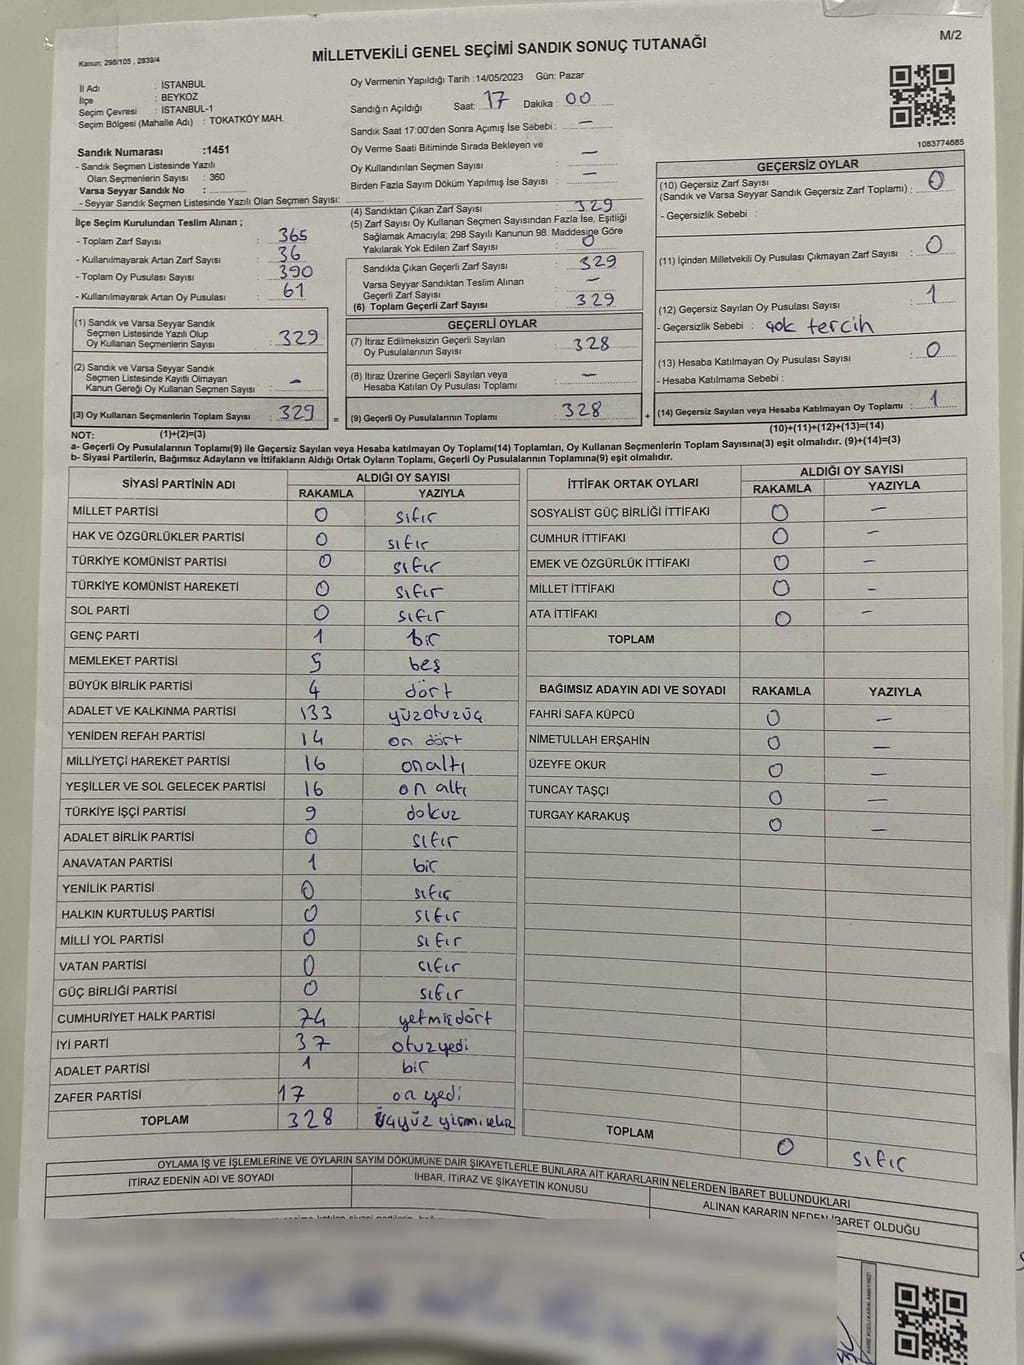 M/2
Kanun: 298/105 , 2839/4
MİLLETVEKİLİ GENEL SEÇİMİ SANDIK SONUÇ TUTANAĞI
İl Adı : İSTANBUL
İlçe : BEYKOZ
Seçim Çevresi : İSTANBUL-1
Seçim Bölgesi (Mahalle Adı) : TOKATKÖY MAH.
Sandık Numarası :1451
- Sandık Seçmen Listesinde Yazılı
Olan Seçmenlerin Sayısı : 360
Varsa Seyyar Sandık No :
- Seyyar Sandık Seçmen Listesinde Yazılı Olan Seçmen Sayısı:
Oy Vermenin Yapıldığı Tarih : 14/05/2023 Gün: Pazar
Sandığın Açıldığı Saat: 17 Dakika : 00
Sandık Saat 17:00'den Sonra Açımış İse Sebebi : —
Oy Verme Saati Bitiminde Sırada Bekleyen ve
Oy Kullandırılan Seçmen Sayısı : —
Birden Fazla Sayım Döküm Yapılmış İse Sayısı : —
1083774685
İlçe Seçim Kurulundan Teslim Alınan ;
- Toplam Zarf Sayısı : 365
- Kullanılmayarak Artan Zarf Sayısı : 36
- Toplam Oy Pusulası Sayısı : 390
- Kullanılmayarak Artan Oy Pusulası : 61
(1) Sandık ve Varsa Seyyar Sandık
Seçmen Listesinde Yazılı Olup
Oy Kullanan Seçmenlerin Sayısı : 329
(2) Sandık ve Varsa Seyyar Sandık
Seçmen Listesinde Kayıtlı Olmayan
Kanun Gereği Oy Kullanan Seçmen Sayısı : —
(3) Oy Kullanan Seçmenlerin Toplam Sayısı : 329 =
(1)+(2)=(3)
(4) Sandıktan Çıkan Zarf Sayısı : 329
(5) Zarf Sayısı Oy Kullanan Seçmen Sayısından Fazla İse, Eşitliği
Sağlamak Amacıyla; 298 Sayılı Kanunun 98. Maddesine Göre
Yakılarak Yok Edilen Zarf Sayısı : 0
Sandıkta Çıkan Geçerli Zarf Sayısı : 329
Varsa Seyyar Sandıktan Teslim Alınan
Geçerli Zarf Sayısı : —
(6) Toplam Geçerli Zarf Sayısı : 329
GEÇERLİ OYLAR
(7) İtiraz Edilmeksizin Geçerli Sayılan
Oy Pusulalarının Sayısı : 328
(8) İtiraz Üzerine Geçerli Sayılan veya
Hesaba Katılan Oy Pusulası Toplamı : —
(9) Geçerli Oy Pusulalarının Toplamı : 328 +
GEÇERSİZ OYLAR
(10) Geçersiz Zarf Sayısı
(Sandık ve Varsa Seyyar Sandık Geçersiz Zarf Toplamı) : 0
- Geçersizlik Sebebi :
(11) İçinden Milletvekili Oy Pusulası Çıkmayan Zarf Sayısı : 0
(12) Geçersiz Sayılan Oy Pusulası Sayısı : 1
- Geçersizlik Sebebi : çok tercih
(13) Hesaba Katılmayan Oy Pusulası Sayısı : 0
- Hesaba Katılmama Sebebi :
(14) Geçersiz Sayılan veya Hesaba Katılmayan Oy Toplamı : 1
(10)+(11)+(12)+(13)=(14)
NOT:
a- Geçerli Oy Pusulalarının Toplamı(9) ile Geçersiz Sayılan veya Hesaba katılmayan Oy Toplamı(14) Toplamları, Oy Kullanan Seçmenlerin Toplam Sayısına(3) eşit olmalıdır. (9)+(14)=(3)
b- Siyasi Partilerin, Bağımsız Adayların ve İttifakların Aldığı Ortak Oyların Toplamı, Geçerli Oy Pusulalarının Toplamına(9) eşit olmalıdır.
SİYASİ PARTİNİN ADI ALDIĞI OY SAYISI
RAKAMLA YAZIYLA
MİLLET PARTİSİ 0 sıfır
HAK VE ÖZGÜRLÜKLER PARTİSİ 0 sıfır
TÜRKİYE KOMÜNİST PARTİSİ 0 sıfır
TÜRKİYE KOMÜNİST HAREKETİ 0 sıfır
SOL PARTİ 0 sıfır
GENÇ PARTİ 1 bir
MEMLEKET PARTİSİ 5 beş
BÜYÜK BİRLİK PARTİSİ 4 dört
ADALET VE KALKINMA PARTİSİ 133 yüzotuzüç
YENİDEN REFAH PARTİSİ 14 on dört
MİLLİYETÇİ HAREKET PARTİSİ 16 onaltı
YEŞİLLER VE SOL GELECEK PARTİSİ 16 on altı
TÜRKİYE İŞÇİ PARTİSİ 9 dokuz
ADALET BİRLİK PARTİSİ 0 sıfır
ANAVATAN PARTİSİ 1 bir
YENİLİK PARTİSİ 0 sıfır
HALKIN KURTULUŞ PARTİSİ 0 sıfır
MİLLİ YOL PARTİSİ 0 sıfır
VATAN PARTİSİ 0 sıfır
GÜÇ BİRLİĞİ PARTİSİ 0 sıfır
CUMHURİYET HALK PARTİSİ 74 yetmişdört
İYİ PARTİ 37 otuzyedi
ADALET PARTİSİ 1 bir
ZAFER PARTİSİ 17 on yedi
TOPLAM 328 üçyüz yirmisekiz
İTTİFAK ORTAK OYLARI ALDIĞI OY SAYISI
RAKAMLA YAZIYLA
SOSYALİST GÜÇ BİRLİĞİ İTTİFAKI 0 —
CUMHUR İTTİFAKI 0 —
EMEK VE ÖZGÜRLÜK İTTİFAKI 0 —
MİLLET İTTİFAKI 0 —
ATA İTTİFAKI 0 —
TOPLAM
BAĞIMSIZ ADAYIN ADI VE SOYADI RAKAMLA YAZIYLA
FAHRİ SAFA KÜPCÜ 0 —
NİMETULLAH ERŞAHİN 0 —
ÜZEYFE OKUR 0 —
TUNCAY TAŞÇI 0 —
TURGAY KARAKUŞ 0 —
TOPLAM 0 sıfır
OYLAMA İŞ VE İŞLEMLERİNE VE OYLARIN SAYIM DÖKÜMÜNE DAİR ŞİKAYETLERLE BUNLARA AİT KARARLARIN NELERDEN İBARET BULUNDUKLARI
İTİRAZ EDENİN ADI VE SOYADI İHBAR, İTİRAZ VE ŞİKAYETİN KONUSU ALINAN KARARIN NEDEN İBARET OLDUĞU